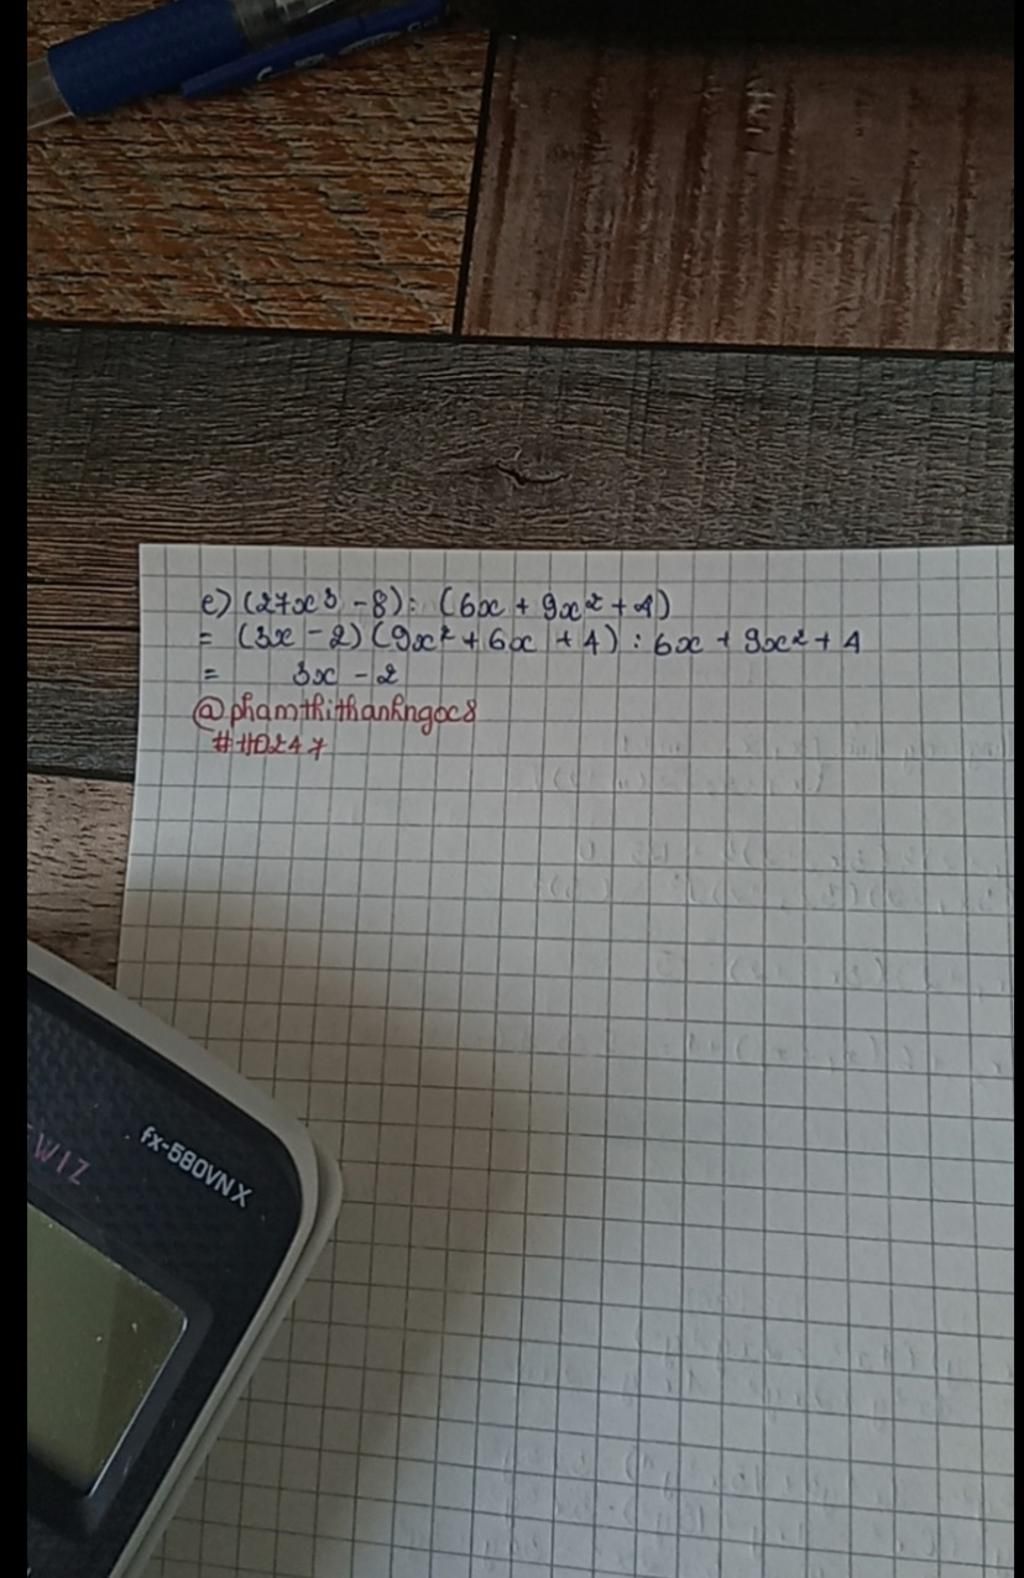 e) (27x³ - 8) : (6x + 9x² + 4)
= (3x - 2) (9x² + 6x + 4) : 6x + 9x² + 4
= 3x - 2
@phamthithanhngoc8
#HD247
WIZ
fx-580VN X